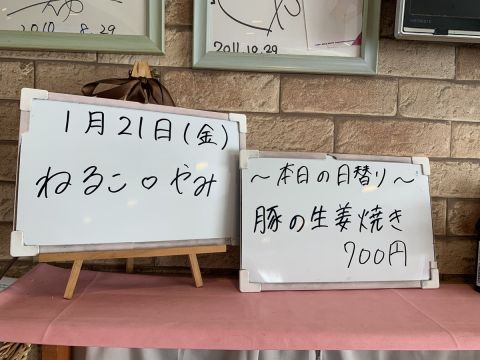 2010 8.29
2011.10.29
1月21日(金)
ねるこ♡やみ
～本日の日替り～
豚の生姜焼き
700円